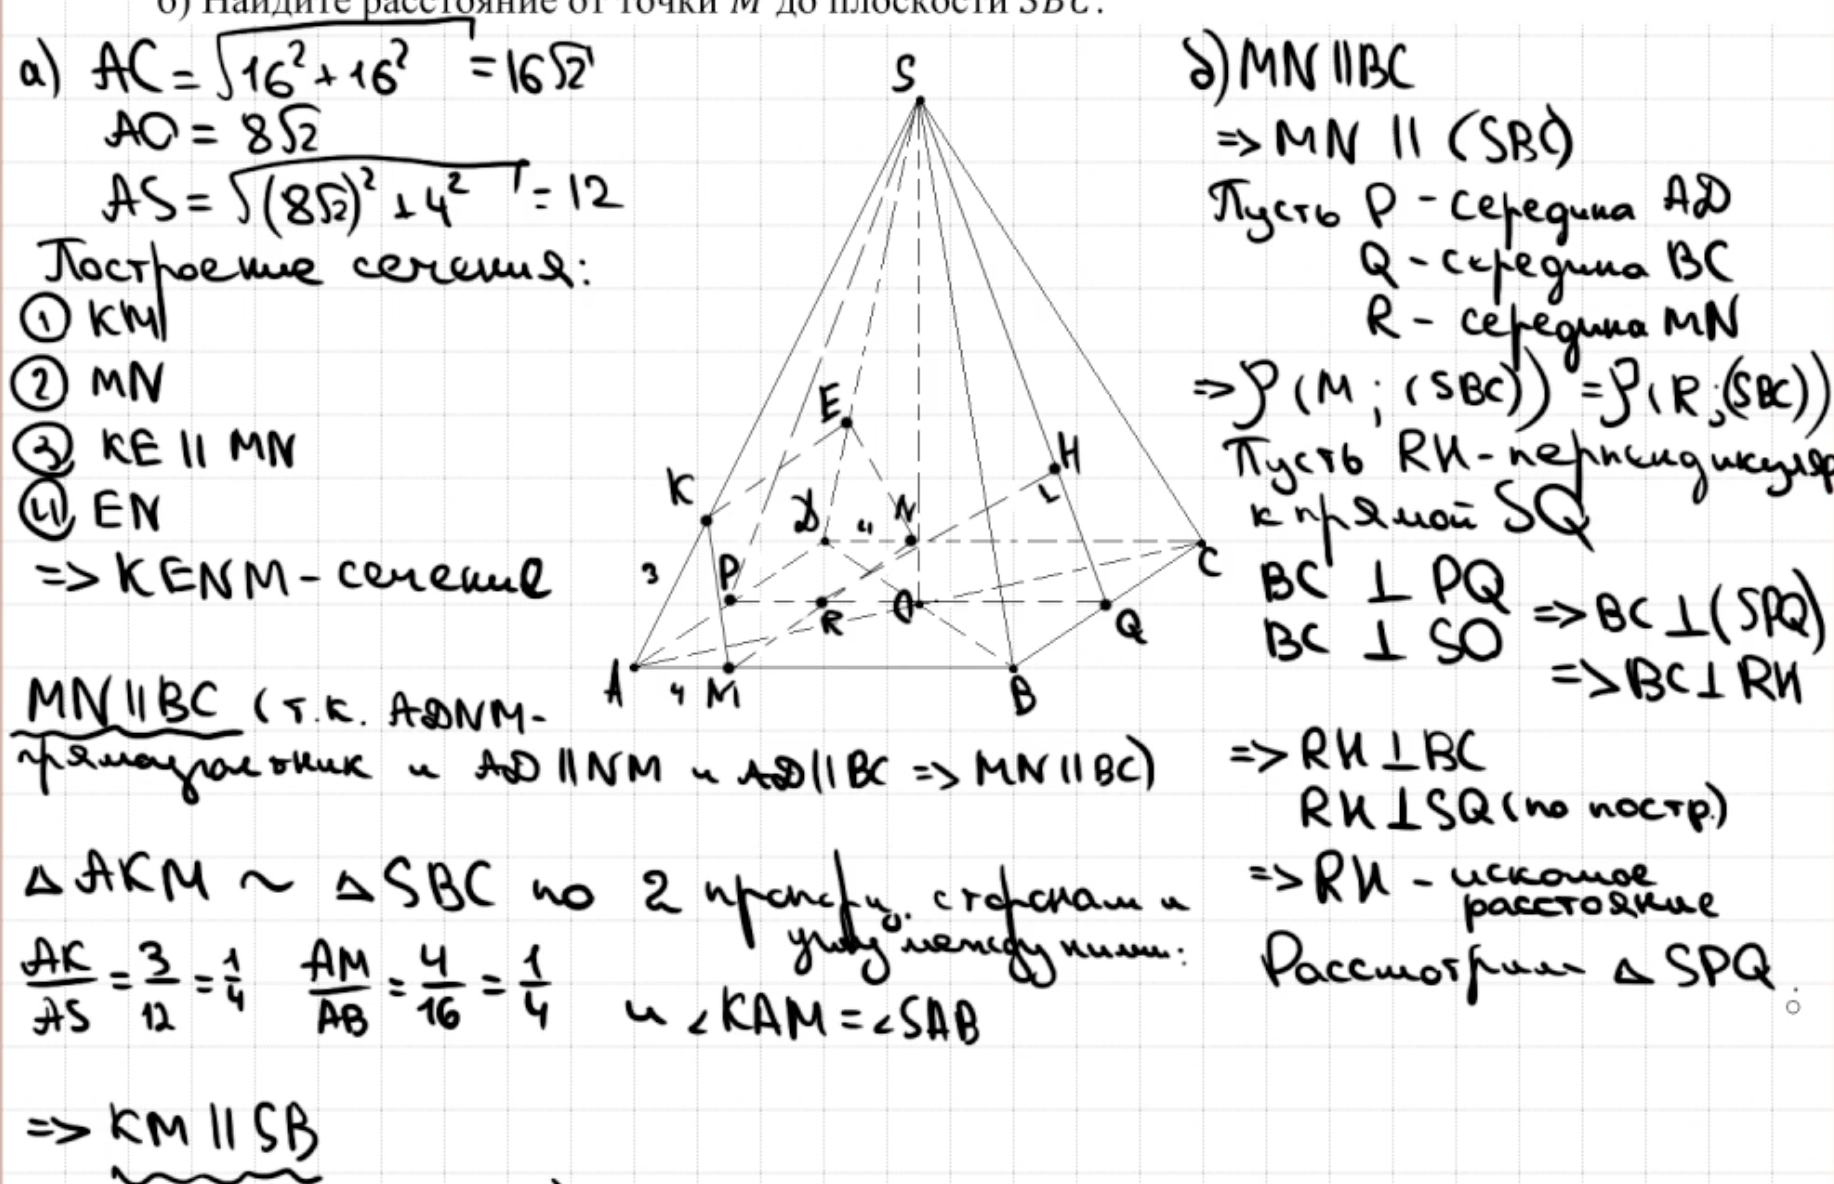 б) Найдите расстояние от точки M до плоскости SBC.
а) AC = √(16² + 16²) = 16√2
AO = 8√2
AS = √((8√2)² + 4²) = 12
Построение сечения:
① KM
② MN
③ KE || MN
④ EN
=> KENM - сечение
MN || BC (т.к. ADNM -
прямоугольник и AD || NM и AD || BC => MN || BC)
△AKM ~ △SBC по 2 пропорц. сторонам и
углу между ними:
AK/AS = 3/12 = 1/4 AM/AB = 4/16 = 1/4 и ∠KAM = ∠SAB
=> KM || SB
S
E
K
H
D
4
N
3
P
C
R
O
Q
A
4
M
B
б) MN || BC
=> MN || (SBC)
Пусть P - середина AD
Q - середина BC
R - середина MN
=> ρ(M; (SBC)) = ρ(R; (SBC))
Пусть RH - перпендикуляр
к прямой SQ
BC ⊥ PQ
BC ⊥ SO => BC ⊥ (SPQ)
=> BC ⊥ RH
=> RH ⊥ BC
RH ⊥ SQ (по постр.)
=> RH - искомое
расстояние
Рассмотрим △SPQ